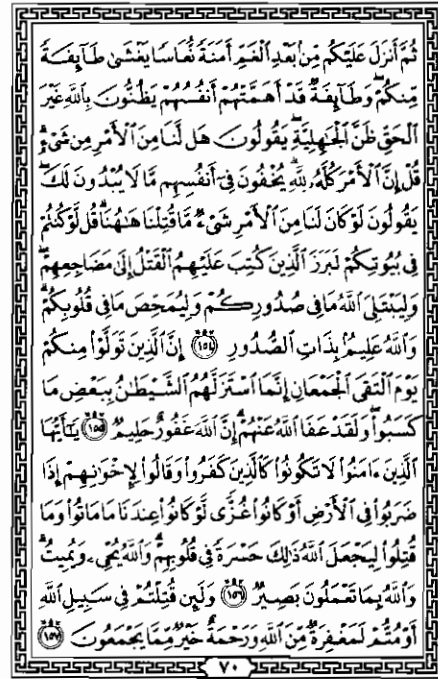 ثُمَّ أَنزَلَ عَلَيْكُم مِّنۢ بَعْدِ ٱلْغَمِّ أَمَنَةً نُّعَاسًا يَغْشَىٰ طَآئِفَةً
مِّنكُمْ ۖ وَطَآئِفَةٌ قَدْ أَهَمَّتْهُمْ أَنفُسُهُمْ يَظُنُّونَ بِٱللَّهِ غَيْرَ
ٱلْحَقِّ ظَنَّ ٱلْجَٰهِلِيَّةِ ۖ يَقُولُونَ هَل لَّنَا مِنَ ٱلْأَمْرِ مِن شَىْءٍ ۗ
قُلْ إِنَّ ٱلْأَمْرَ كُلَّهُۥ لِلَّهِ ۗ يُخْفُونَ فِىٓ أَنفُسِهِم مَّا لَا يُبْدُونَ لَكَ ۖ
يَقُولُونَ لَوْ كَانَ لَنَا مِنَ ٱلْأَمْرِ شَىْءٌ مَّا قُتِلْنَا هَٰهُنَا ۗ قُل لَّوْ كُنتُمْ
فِى بُيُوتِكُمْ لَبَرَزَ ٱلَّذِينَ كُتِبَ عَلَيْهِمُ ٱلْقَتْلُ إِلَىٰ مَضَاجِعِهِمْ ۖ
وَلِيَبْتَلِىَ ٱللَّهُ مَا فِى صُدُورِكُمْ وَلِيُمَحِّصَ مَا فِى قُلُوبِكُمْ ۗ
وَٱللَّهُ عَلِيمٌۢ بِذَاتِ ٱلصُّدُورِ ١٥٤ إِنَّ ٱلَّذِينَ تَوَلَّوْا۟ مِنكُمْ
يَوْمَ ٱلْتَقَى ٱلْجَمْعَانِ إِنَّمَا ٱسْتَزَلَّهُمُ ٱلشَّيْطَٰنُ بِبَعْضِ مَا
كَسَبُوا۟ ۖ وَلَقَدْ عَفَا ٱللَّهُ عَنْهُمْ ۗ إِنَّ ٱللَّهَ غَفُورٌ حَلِيمٌ ١٥٥ يَٰٓأَيُّهَا
ٱلَّذِينَ ءَامَنُوا۟ لَا تَكُونُوا۟ كَٱلَّذِينَ كَفَرُوا۟ وَقَالُوا۟ لِإِخْوَٰنِهِمْ إِذَا
ضَرَبُوا۟ فِى ٱلْأَرْضِ أَوْ كَانُوا۟ غُزًّى لَّوْ كَانُوا۟ عِندَنَا مَا مَاتُوا۟ وَمَا
قُتِلُوا۟ لِيَجْعَلَ ٱللَّهُ ذَٰلِكَ حَسْرَةً فِى قُلُوبِهِمْ ۗ وَٱللَّهُ يُحْىِۦ وَيُمِيتُ ۗ
وَٱللَّهُ بِمَا تَعْمَلُونَ بَصِيرٌ ١٥٦ وَلَئِن قُتِلْتُمْ فِى سَبِيلِ ٱللَّهِ
أَوْ مُتُّمْ لَمَغْفِرَةٌ مِّنَ ٱللَّهِ وَرَحْمَةٌ خَيْرٌ مِّمَّا يَجْمَعُونَ ١٥٧
٧٠